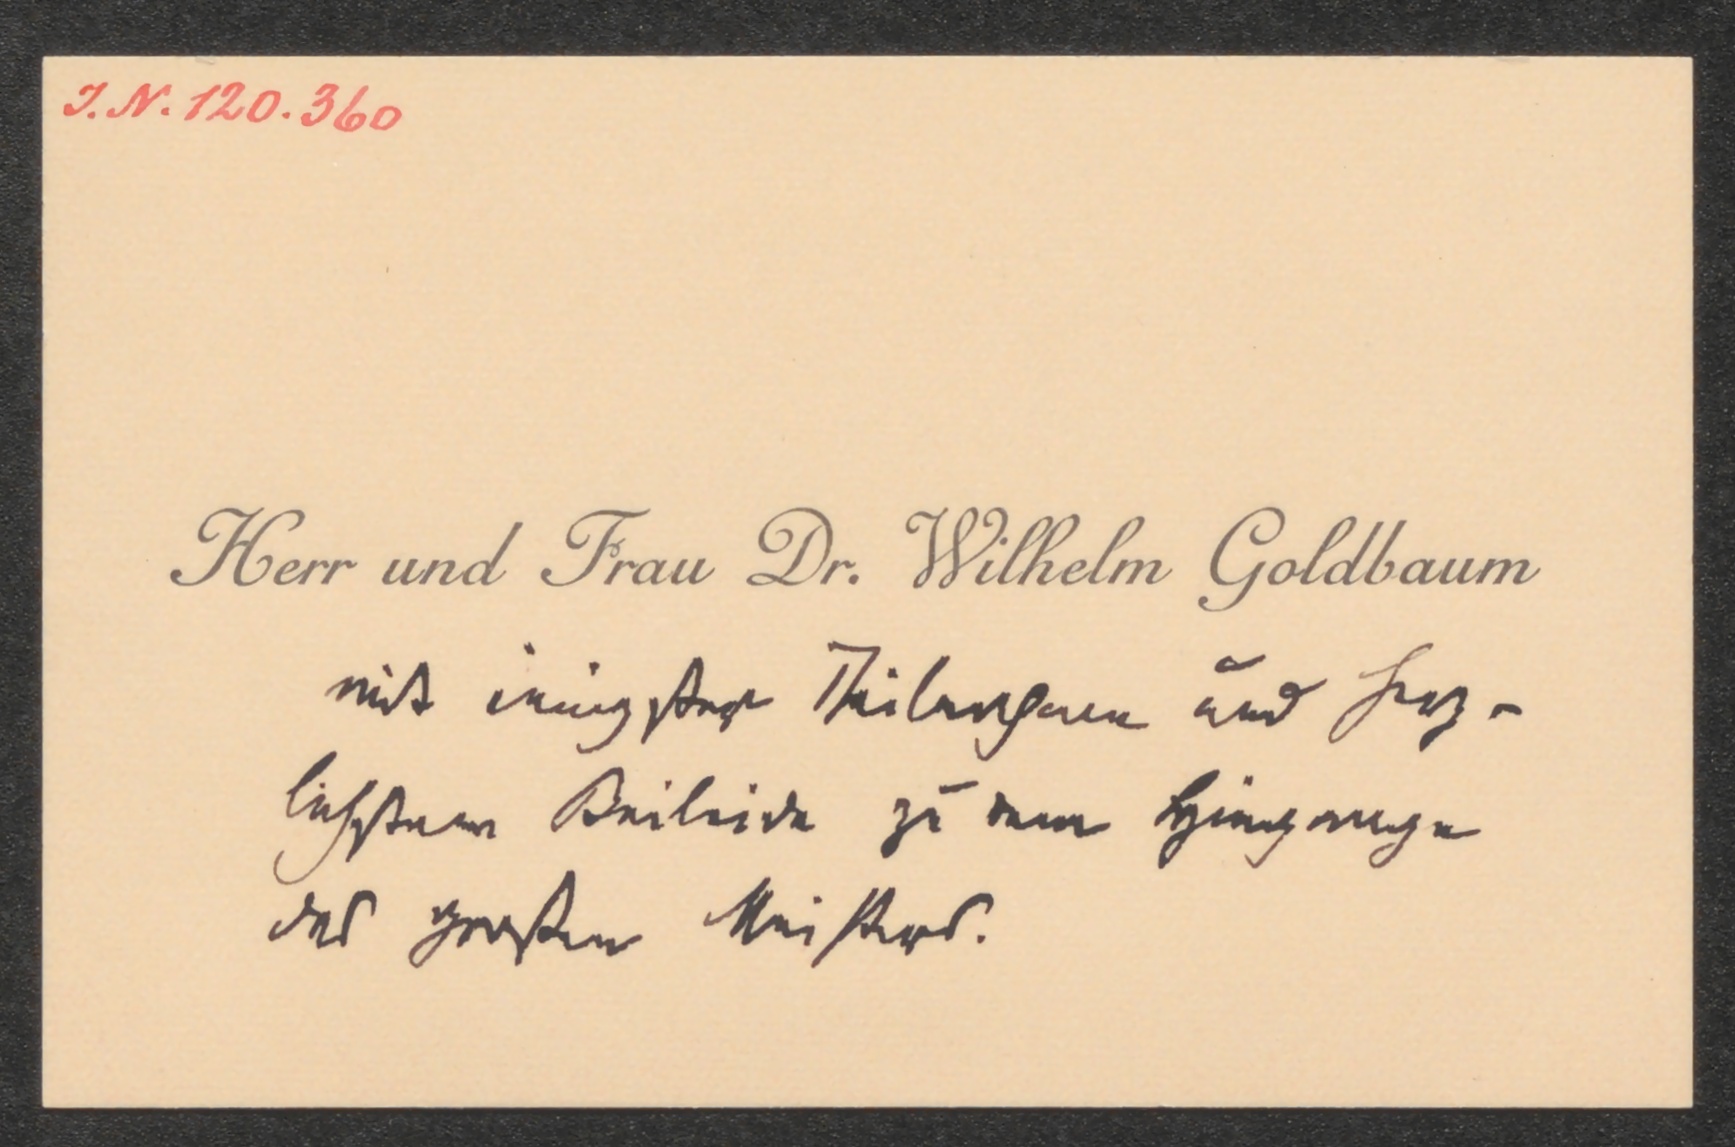 I.N. 120.360
Herr und Frau Dr. Wilhelm Goldbaum
mit innigster Theilnahme und herz-
lichstem Beileide zu dem Hingange
des großen Meisters.